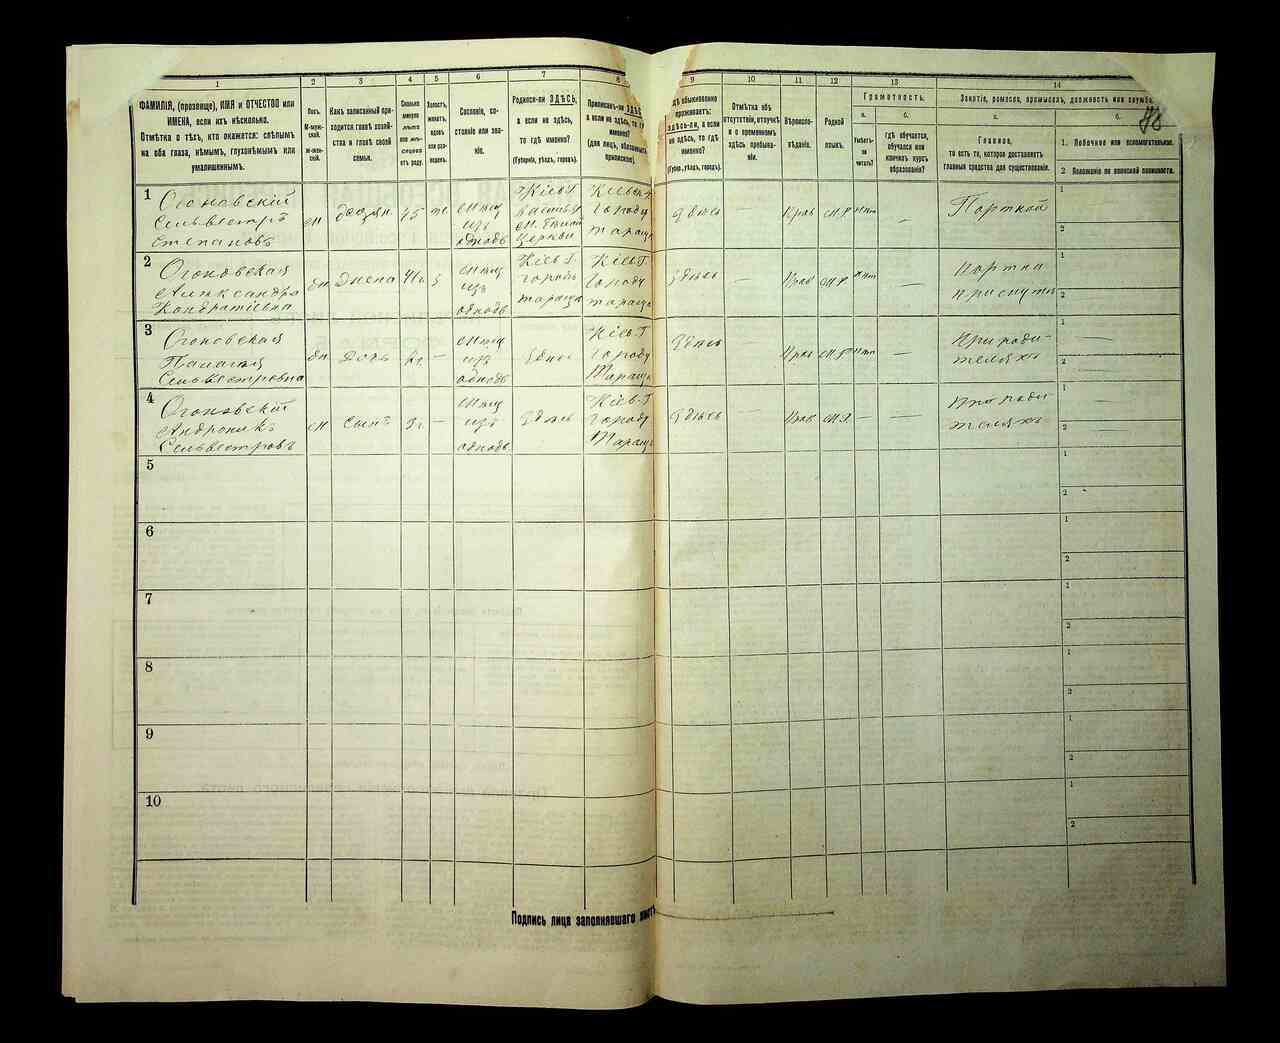 1 2 3 4 5 6 7 8 9 10 11 12 13 14
ФАМИЛІЯ, (прозвище), ИМЯ и ОТЧЕСТВО или
ИМЕНА, если ихъ нѣсколько.
Отмѣтка о тѣхъ, кто окажется: слѣпымъ
на оба глаза, нѣмымъ, глухонѣмымъ или
умалишеннымъ.
Полъ.
М-муж-
ской.
ж-жен-
скій.
Какъ записанный при-
ходится главѣ хозяй-
ства и главѣ своей
семьи.
Сколько
минуло
лѣтъ
или мѣ-
сяцевъ
отъ роду.
Холостъ,
женатъ,
вдовъ
или раз-
веденъ.
Сословіе, со-
стояніе или зва-
ніе.
Родился-ли ЗДѢСЬ,
а если не здѣсь,
то гдѣ именно?
(Губернія, уѣздъ, городъ).
Приписанъ-ли ЗДѢ
а если не здѣсь, то гд
именно?
(для лицъ, обязанныхъ
припиской).
ГДѢ обыкновенно
проживаетъ:
ЗДѢСЬ-ЛИ, а если
не здѣсь, то гдѣ
именно?
(Губерн., уѣздъ, городъ).
Отмѣтка объ
отсутствіи, отлучкѣ
и о временномъ
здѣсь пребыва-
ніи.
Вѣроиспо-
вѣданіе.
Родной
языкъ.
Грамотность.
а. б.
Умѣетъ-
ли
читать?
гдѣ обучается,
обучался или
кончилъ курсъ
образованія?
Занятіе, ремесло, промыселъ, должность или служба.
а. б.
Главное,
то есть то, которое доставляетъ
главныя средства для существованія.
1. Побочное или вспомогательное.
2 Положеніе по воинской повинности.
1 Огоновскій
Сельвестръ
Степановъ
м
хозяин
45
ж
мѣщ
изъ
однодв
Кіев Г.
Церкви
Кіевск Г
Городу
Таращѣ
Здѣсь
—
Прав
м.р
нѣт
—
Портной
1
2
2 Огоновская
Александра
Кондратіевна
Жена
мѣщ
изъ
однодв
Кіев Г.
город
Тараща
Кіев Г.
Городу
Таращѣ
Здѣсь
—
Прав
м.р
нѣт
—
1
2
3 Огоновская
Пелагея
Сельвестровна
Дочь
—
мѣщ
изъ
однодв
Здѣсь
Кіев. Г
Городу
Таращѣ
Здѣсь
—
Прав
м.р
нѣт
—
При роди-
теляхъ
1
2
4 Огоновскій
Андроникъ
Сельвестровъ
м
Сынъ
9
—
мѣщ
изъ
однодв.
Здѣсь
Кіев. Г
Городу
Таращѣ
Здѣсь
—
Прав
м.р.
—
—
При роди-
теляхъ
1
2
5
1
2
6
1
2
7
1
2
8
1
2
9
1
2
10
1
2
Подпись лица заполнявшаго листъ